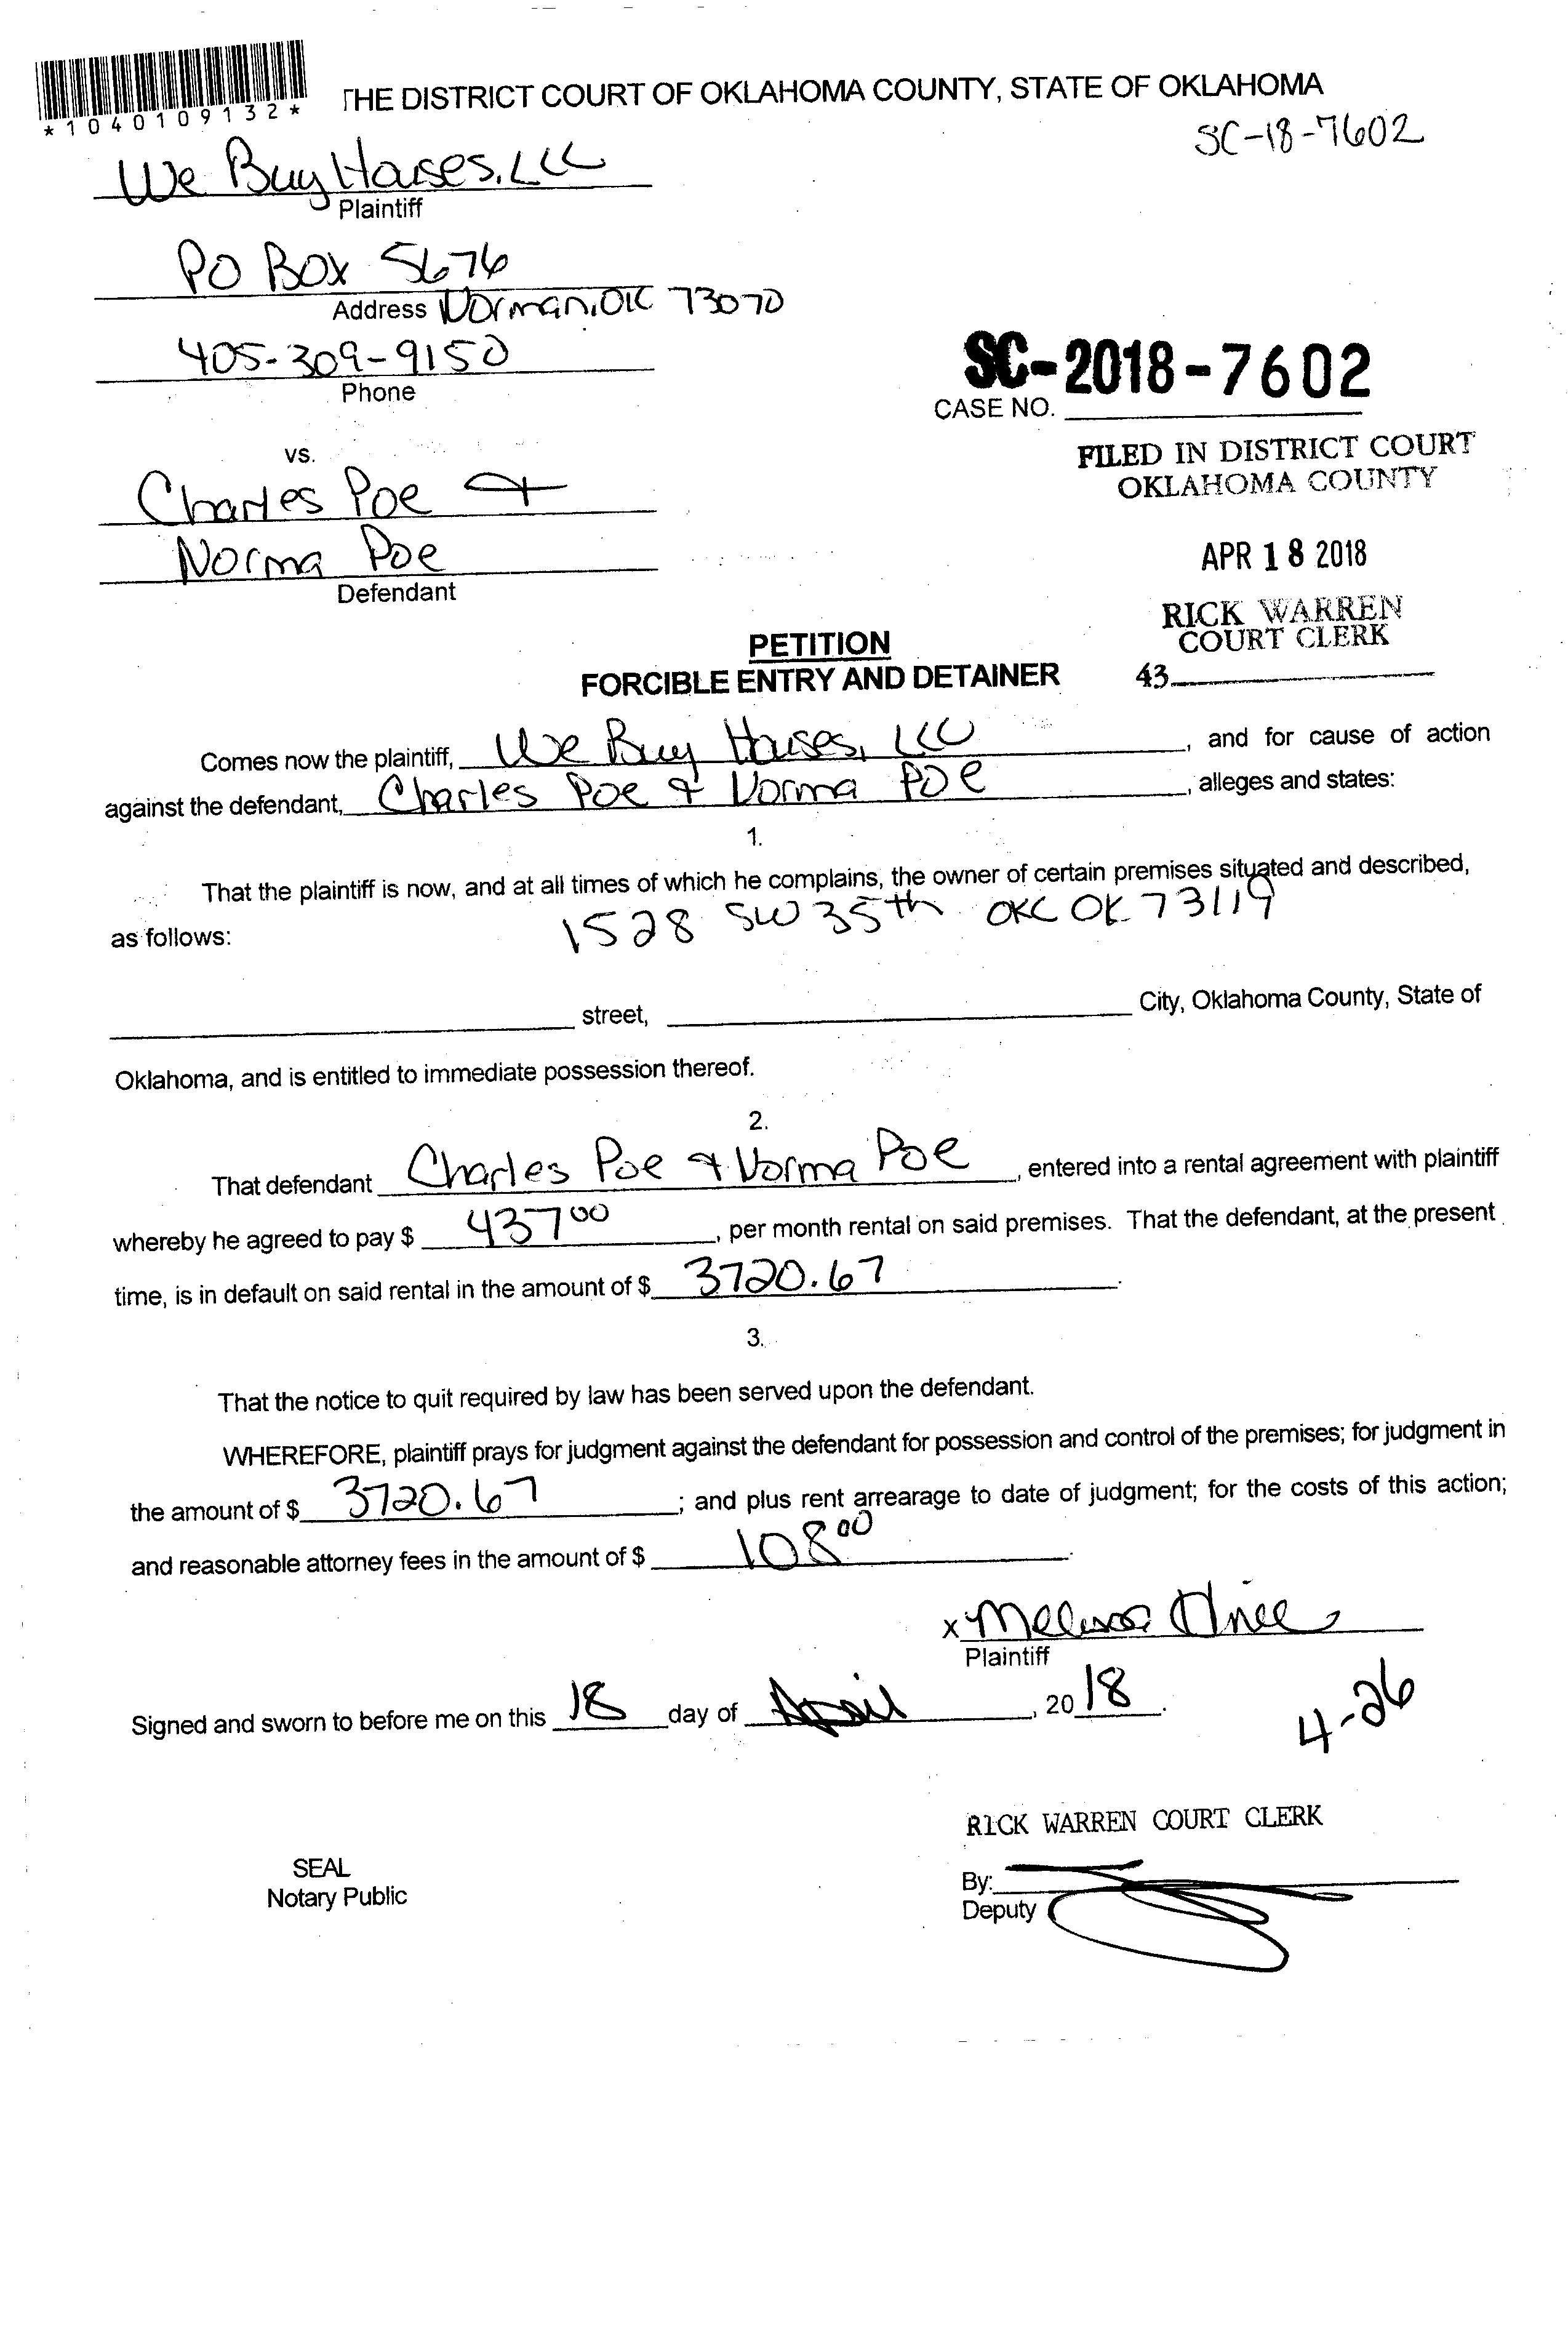 *1040109132*
THE DISTRICT COURT OF OKLAHOMA COUNTY, STATE OF OKLAHOMA
SC-18-7602
We Buy Houses, LLC
Plaintiff
PO Box 5676
Address Norman, OK 73070
405-309-9150
Phone
SC-2018-7602
CASE NO.
vs.
FILED IN DISTRICT COURT
OKLAHOMA COUNTY
Charles Poe &
Norma Poe
Defendant
APR 18 2018
RICK WARREN
COURT CLERK
43
PETITION
FORCIBLE ENTRY AND DETAINER
Comes now the plaintiff, We Buy Houses, LLC, and for cause of action
against the defendant, Charles Poe & Norma Poe, alleges and states:
1.
That the plaintiff is now, and at all times of which he complains, the owner of certain premises situated and described,
as follows: 1528 SW 35th OKC OK 73119
street, City, Oklahoma County, State of
Oklahoma, and is entitled to immediate possession thereof.
2.
That defendant Charles Poe & Norma Poe, entered into a rental agreement with plaintiff
whereby he agreed to pay $ 437 00, per month rental on said premises. That the defendant, at the present
time, is in default on said rental in the amount of $ 3720.67.
3.
That the notice to quit required by law has been served upon the defendant.
WHEREFORE, plaintiff prays for judgment against the defendant for possession and control of the premises; for judgment in
the amount of $ 3720.67; and plus rent arrearage to date of judgment; for the costs of this action;
and reasonable attorney fees in the amount of $ 108 00.
x Melissa
Plaintiff
Signed and sworn to before me on this 18 day of April, 20 18.
4-26
RICK WARREN COURT CLERK
SEAL
Notary Public
By:
Deputy